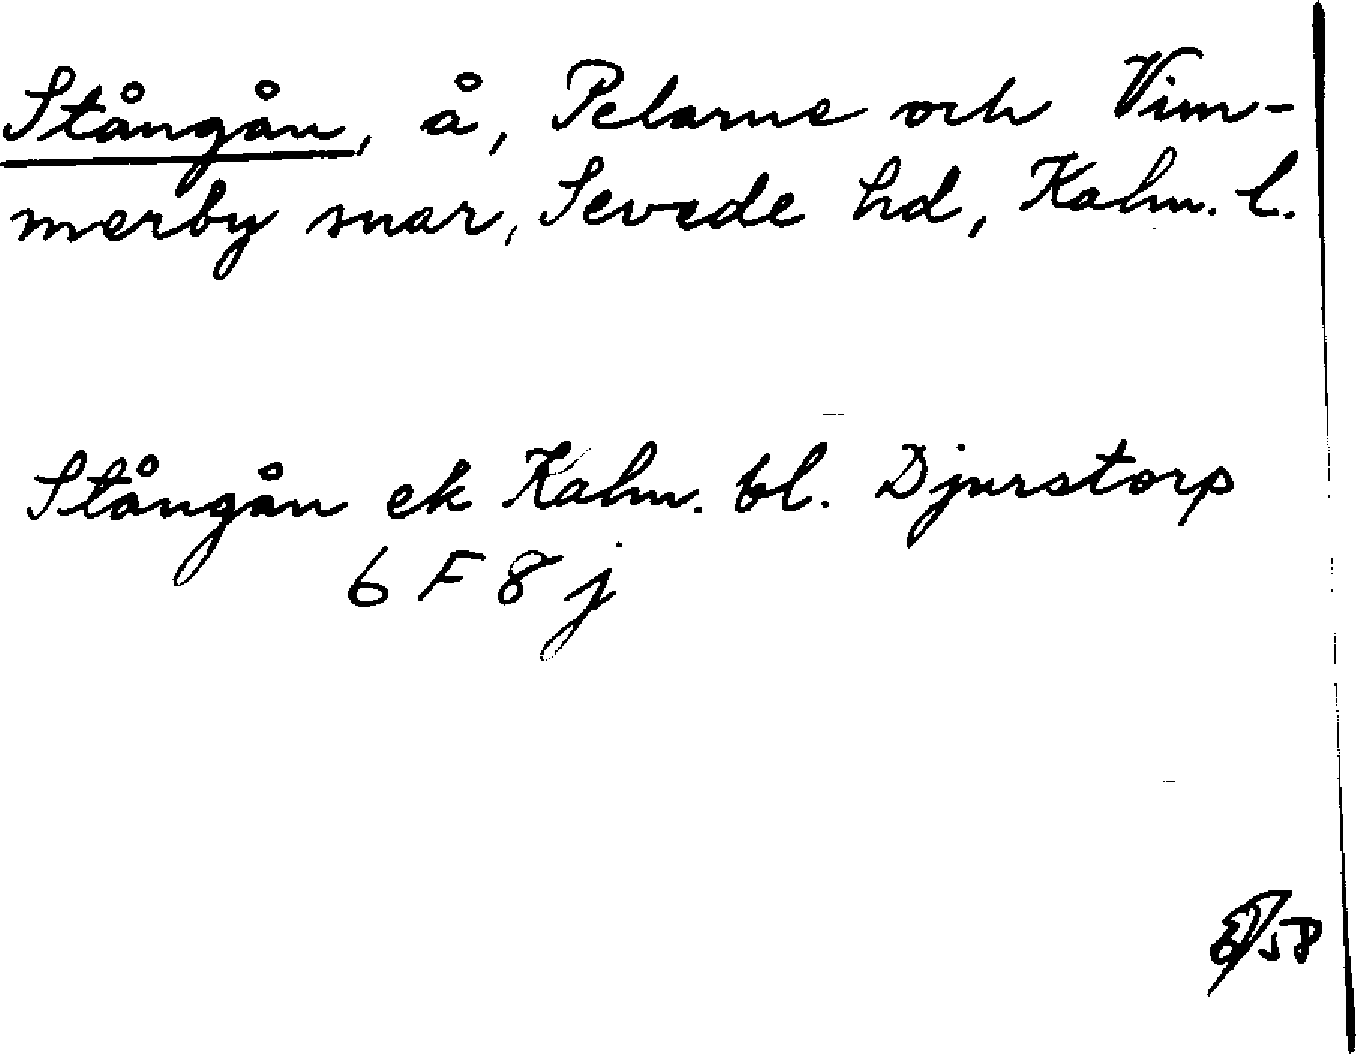 Stångån, å, Pelarne och Vim-
merby snar, Sevede hd, Kalm. l.
Stångån ek Kalm. bl. Djurstorp
6 F 8 j
58